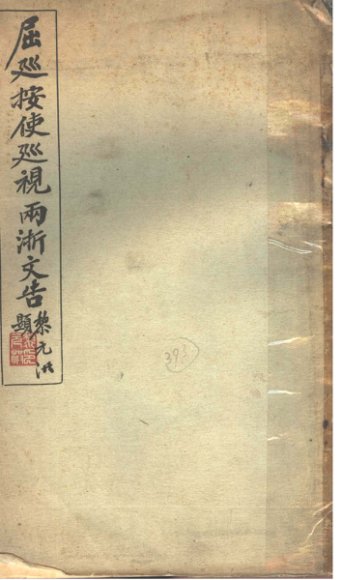 屈巡按使巡視兩浙文告
黎元洪
題
393